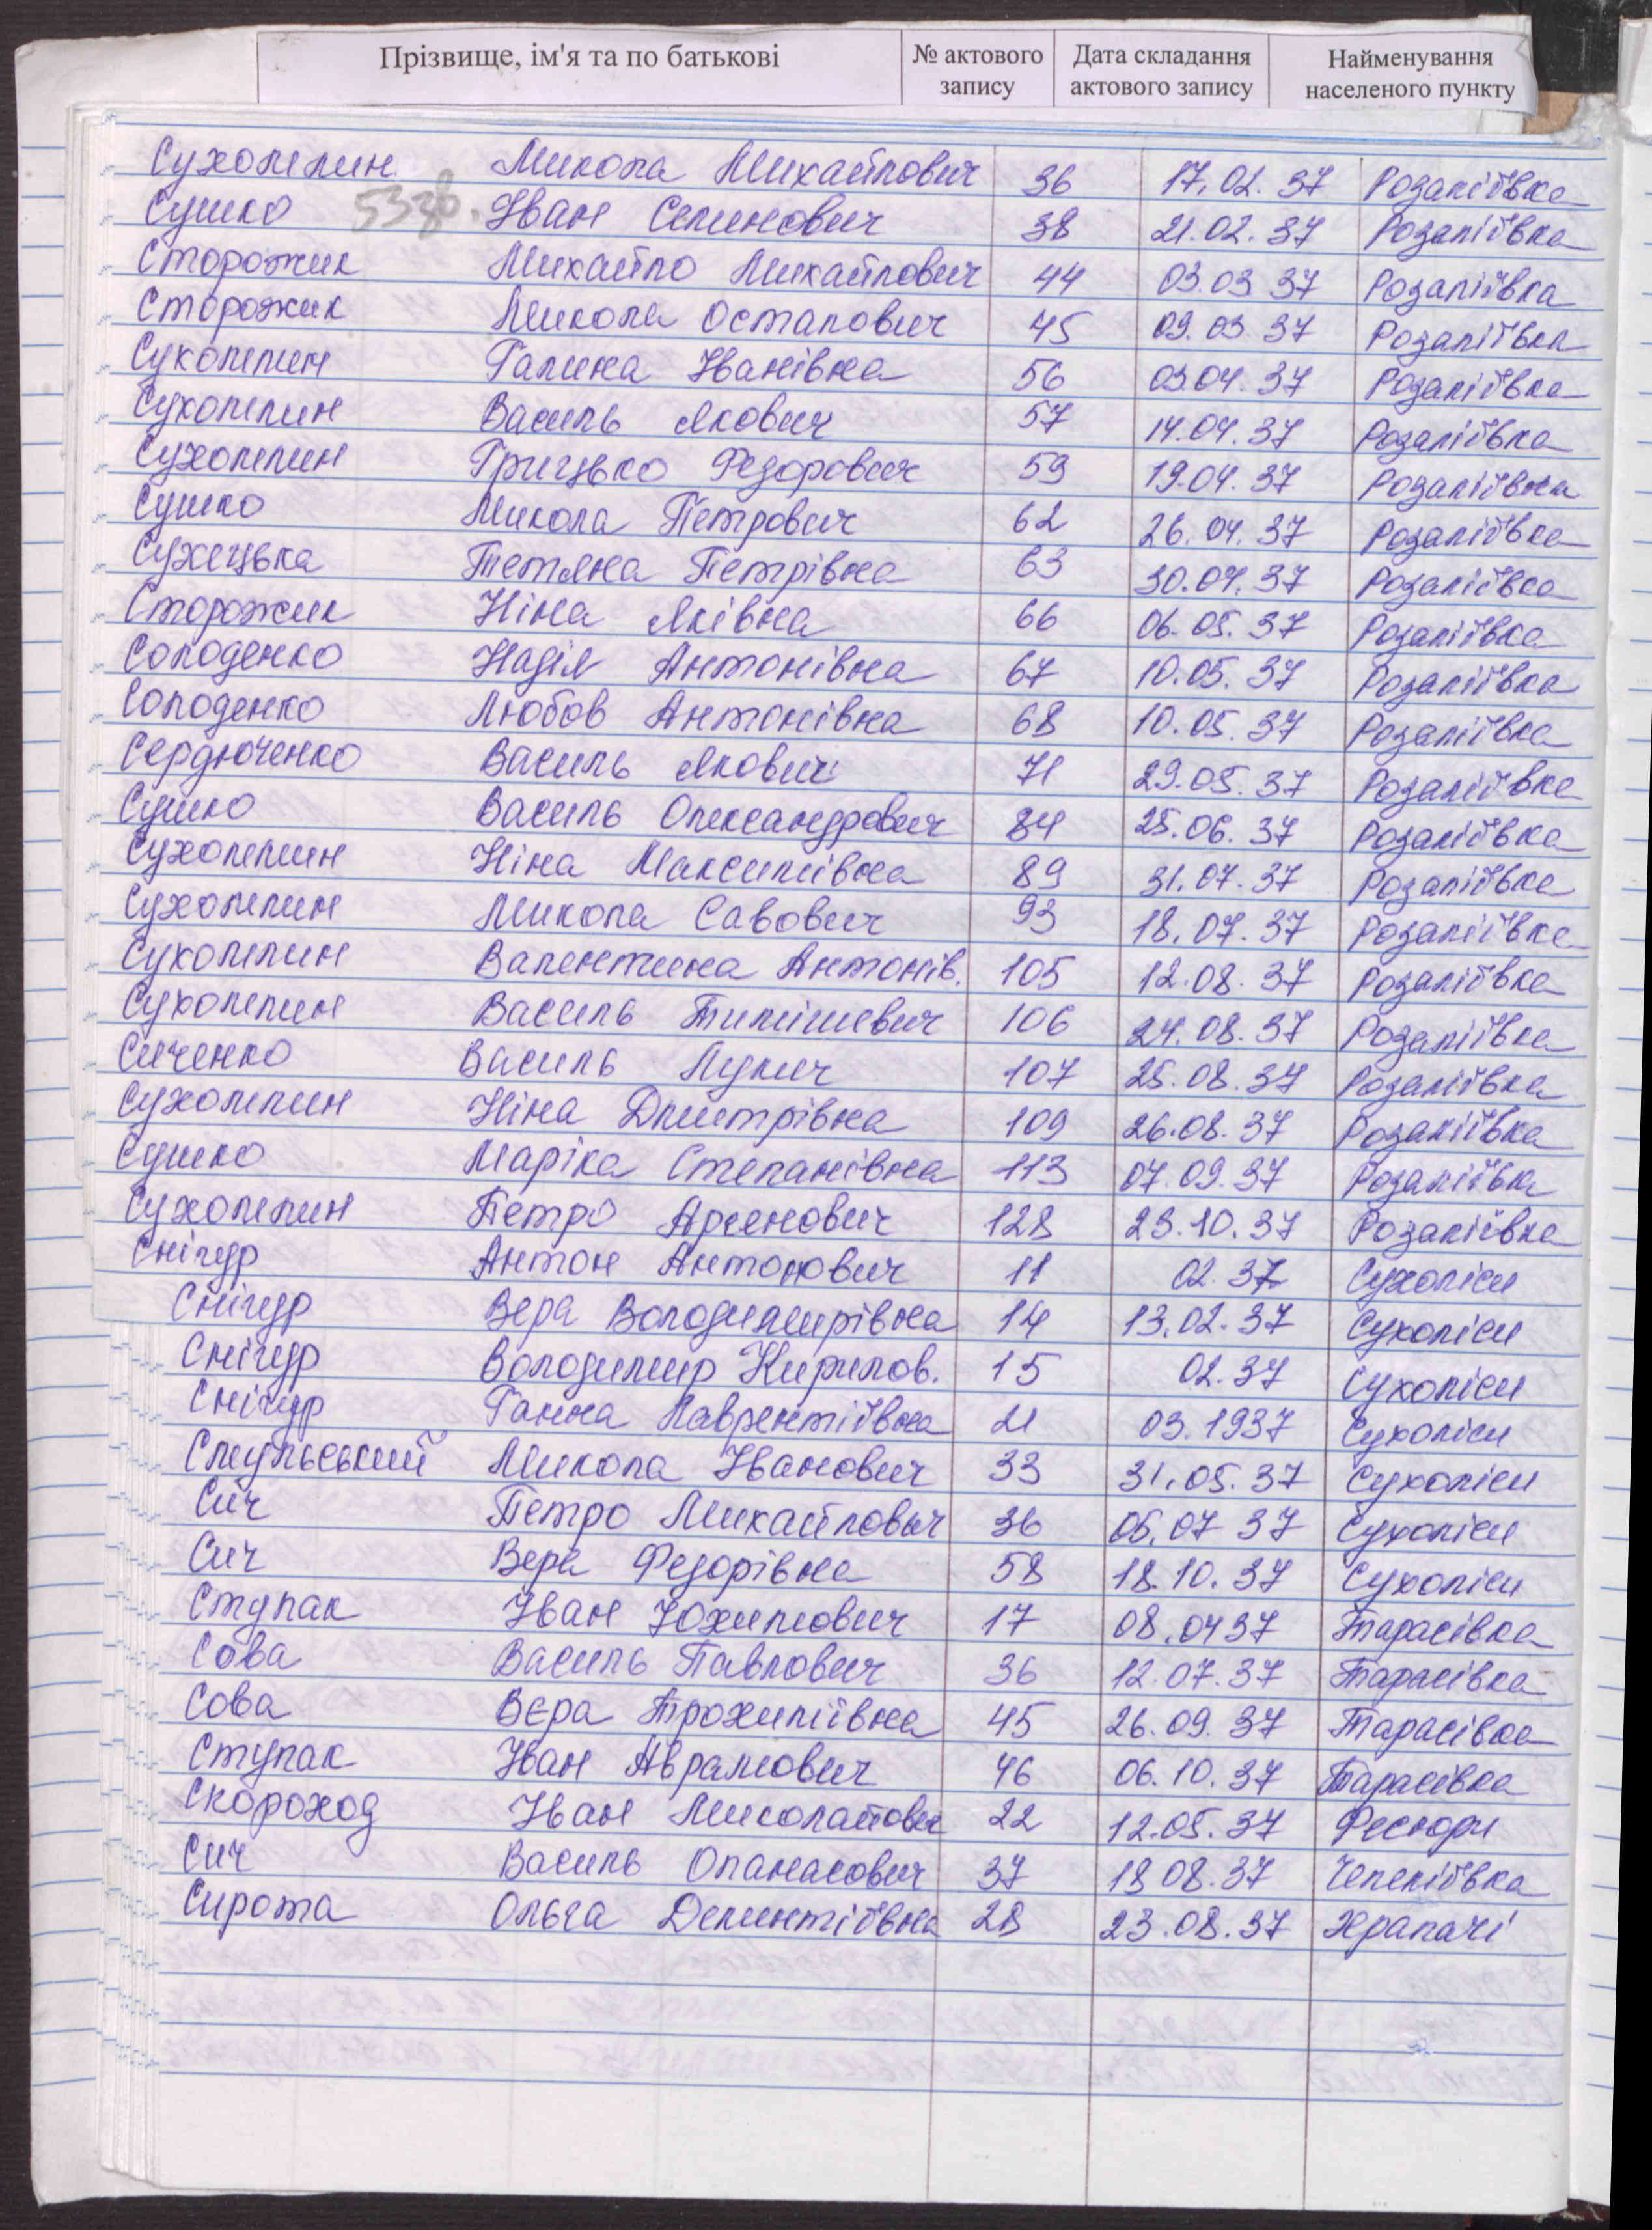 Прізвище, ім'я та по батькові № актового запису Дата складання актового запису Найменування населеного пункту
Сухолипин Микола Михайлович 36 17.02.37 Розаліївка
Сушко Іван Семинович 38 21.02.37 Розаліївка
Сторожик Михайло Михайлович 44 03.03 37 Розаліївка
Сторожик Микола Остапович 45 09.03 37 Розаліївка
Сухолипин Галина Іванівна 56 03 04.37 Розаліївка
Сухолипин Василь Якович 57 14.04.37 Розаліївка
Сухолипин Грицько Федорович 59 19.04.37 Розаліївка
Сушко Микола Петрович 62 26.04.37 Розаліївка
Сухецька Тетяна Петрівна 63 30.04.37 Розаліївка
Сторожик Ніна Яківна 66 06.05.37 Розаліївка
Солоденко Надія Антонівна 67 10.05.37 Розаліївка
Солоденко Любов Антонівна 68 10.05.37 Розаліївка
Сердюченко Василь Якович 71 29.05.37 Розаліївка
Сушко Василь Олександрович 84 25.06.37 Розаліївка
Сухолипин Ніна Максимівна 89 31.07.37 Розаліївка
Сухолипин Микола Савович 93 18.07.37 Розаліївка
Сухолипин Валентина Антонів. 105 12.08.37 Розаліївка
Сухолипин Василь Тимішевич 106 24.08.37 Розаліївка
Сиченко Василь Лукич 107 25.08.37 Розаліївка
Сухолипин Ніна Дмитрівна 109 26.08.37 Розаліївка
Сушко Маріка Степанівна 113 07.09.37 Розаліївка
Сухолипин Петро Арсенович 128 23.10.37 Розаліївка
Снігур Антон Антонович 11 02.37 Сухоліси
Снігур Вера Володимирівна 14 13.02.37 Сухоліси
Снігур Володимир Кирилов. 15 02.37 Сухоліси
Снігур Ганна Лаврентіївна 21 03.1937 Сухоліси
Смульський Микола Іванович 33 31.05.37 Сухоліси
Сич Петро Михайлович 36 05.07 37 Сухоліси
Сич Вера Федорівна 58 18.10.37 Сухоліси
Ступак Іван Юхимович 17 08.04 37 Тарасівка
Сова Василь Павлович 36 12.07.37 Тарасівка
Сова Вєра Трохимівна 45 26.09.37 Тарасівка
Ступак Іван Аврамович 46 06.10.37 Тарасівка
Скороход Іван Миколайович 22 12.05.37 Фесюри
Сич Василь Опанасович 37 18 08.37 Чепеліївка
Сирота Ольга Дементіївна 28 23.08.37 Храпачі